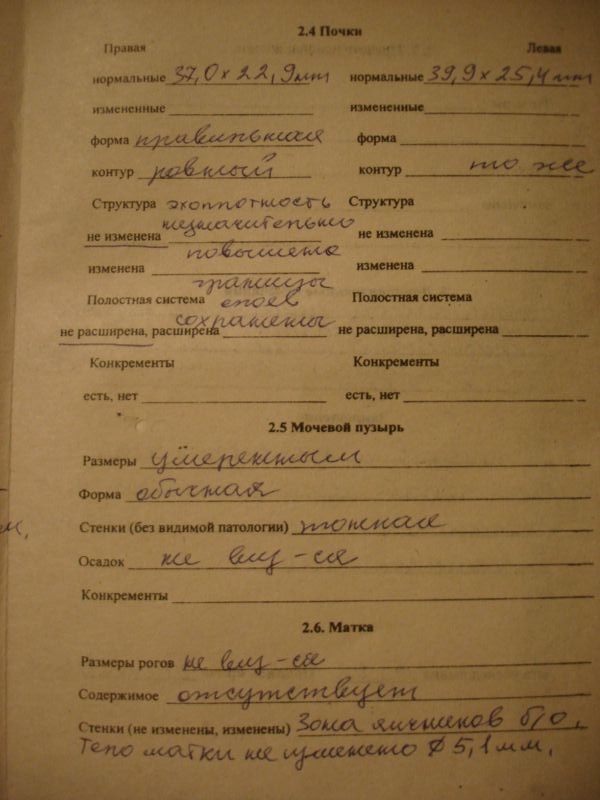 2.4 Почки
Правая Левая
нормальные 37,0 x 22,9мм нормальные 39,9 x 25,4 мм
измененные измененные
форма правильная форма
контур ровный контур то же
Структура эхоплотность Структура
незначительно
не изменена не изменена
повышена
изменена изменена
границы
Полостная система слоев Полостная система
сохранены
не расширена, расширена не расширена, расширена
Конкременты Конкременты
есть, нет есть, нет
2.5 Мочевой пузырь
Размеры умеренный
Форма обычная
м, Стенки (без видимой патологии) тонкая
Осадок не виз-ся
Конкременты
2.6. Матка
Размеры рогов не виз-ся
Содержимое отсутствует
Стенки (не изменены, изменены) Зона яичников б/о.
Тело матки не изменено ⌀ 5,1 мм.